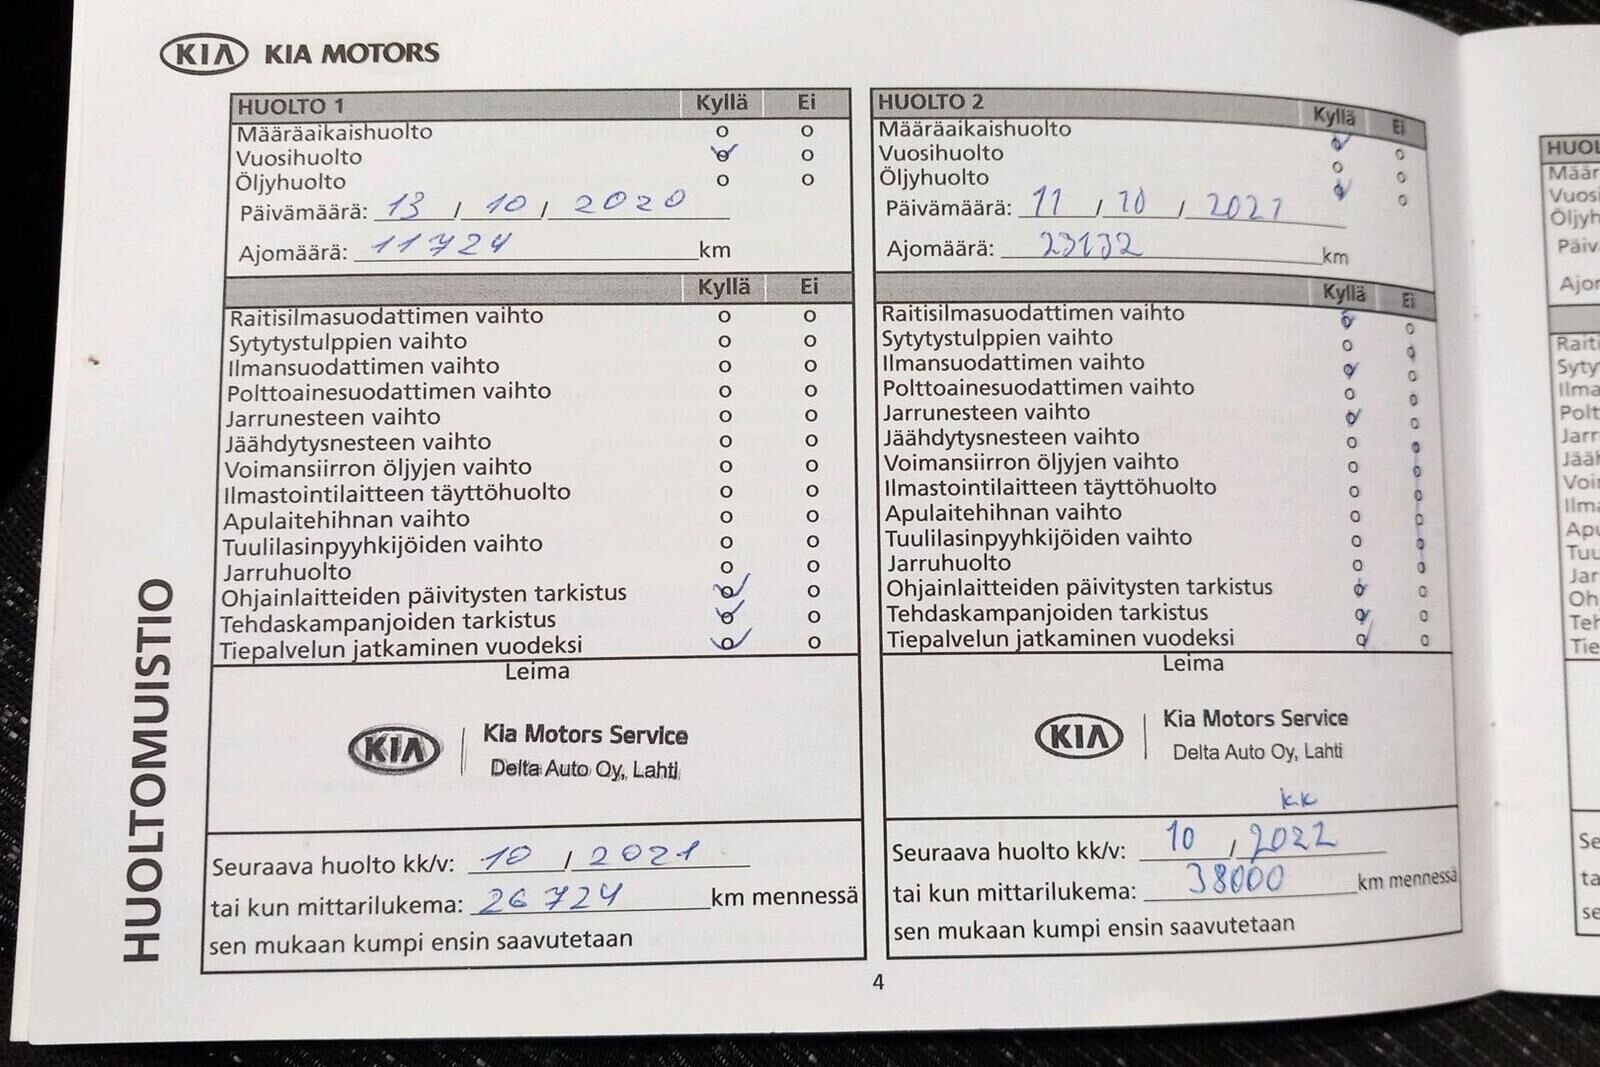 KIA KIA MOTORS
HUOLTOMUISTIO
HUOLTO 1 Kyllä Ei
Määräaikaishuolto o o
Vuosihuolto o o
Öljyhuolto o o
Päivämäärä: 13 / 10 / 2020
Ajomäärä: 11724 km
Kyllä Ei
Raitisilmasuodattimen vaihto o o
Sytytystulppien vaihto o o
Ilmansuodattimen vaihto o o
Polttoainesuodattimen vaihto o o
Jarrunesteen vaihto o o
Jäähdytysnesteen vaihto o o
Voimansiirron öljyjen vaihto o o
Ilmastointilaitteen täyttöhuolto o o
Apulaitehihnan vaihto o o
Tuulilasinpyyhkijöiden vaihto o o
Jarruhuolto o o
Ohjainlaitteiden päivitysten tarkistus o o
Tehdaskampanjoiden tarkistus o o
Tiepalvelun jatkaminen vuodeksi o o
Leima
KIA Kia Motors Service
Delta Auto Oy, Lahti
Seuraava huolto kk/v: 10 / 2021
tai kun mittarilukema: 26724 km mennessä
sen mukaan kumpi ensin saavutetaan
HUOLTO 2 Kyllä Ei
Määräaikaishuolto o o
Vuosihuolto o o
Öljyhuolto o o
Päivämäärä: 11 / 10 / 2021
Ajomäärä: 23132 km
Kyllä Ei
Raitisilmasuodattimen vaihto o o
Sytytystulppien vaihto o o
Ilmansuodattimen vaihto o o
Polttoainesuodattimen vaihto o o
Jarrunesteen vaihto o o
Jäähdytysnesteen vaihto o o
Voimansiirron öljyjen vaihto o o
Ilmastointilaitteen täyttöhuolto o o
Apulaitehihnan vaihto o o
Tuulilasinpyyhkijöiden vaihto o o
Jarruhuolto o o
Ohjainlaitteiden päivitysten tarkistus o o
Tehdaskampanjoiden tarkistus o o
Tiepalvelun jatkaminen vuodeksi o o
Leima
KIA Kia Motors Service
Delta Auto Oy, Lahti
kk
Seuraava huolto kk/v: 10 / 2022
tai kun mittarilukema: 38000 km mennessä
sen mukaan kumpi ensin saavutetaan
4